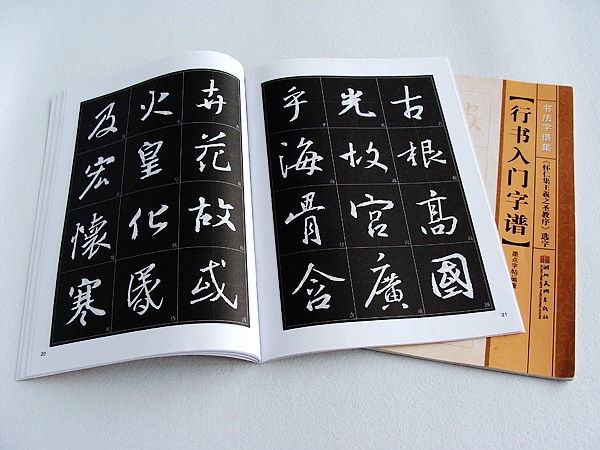 古根高國
光故宮廣
乎海骨含
21
卉花故或
火皇化
及宏懷寒
20
书法字谱集
【行书入门字谱】
《怀仁集王羲之圣教序》选字
墨点字帖·编著
湖北美术出版社